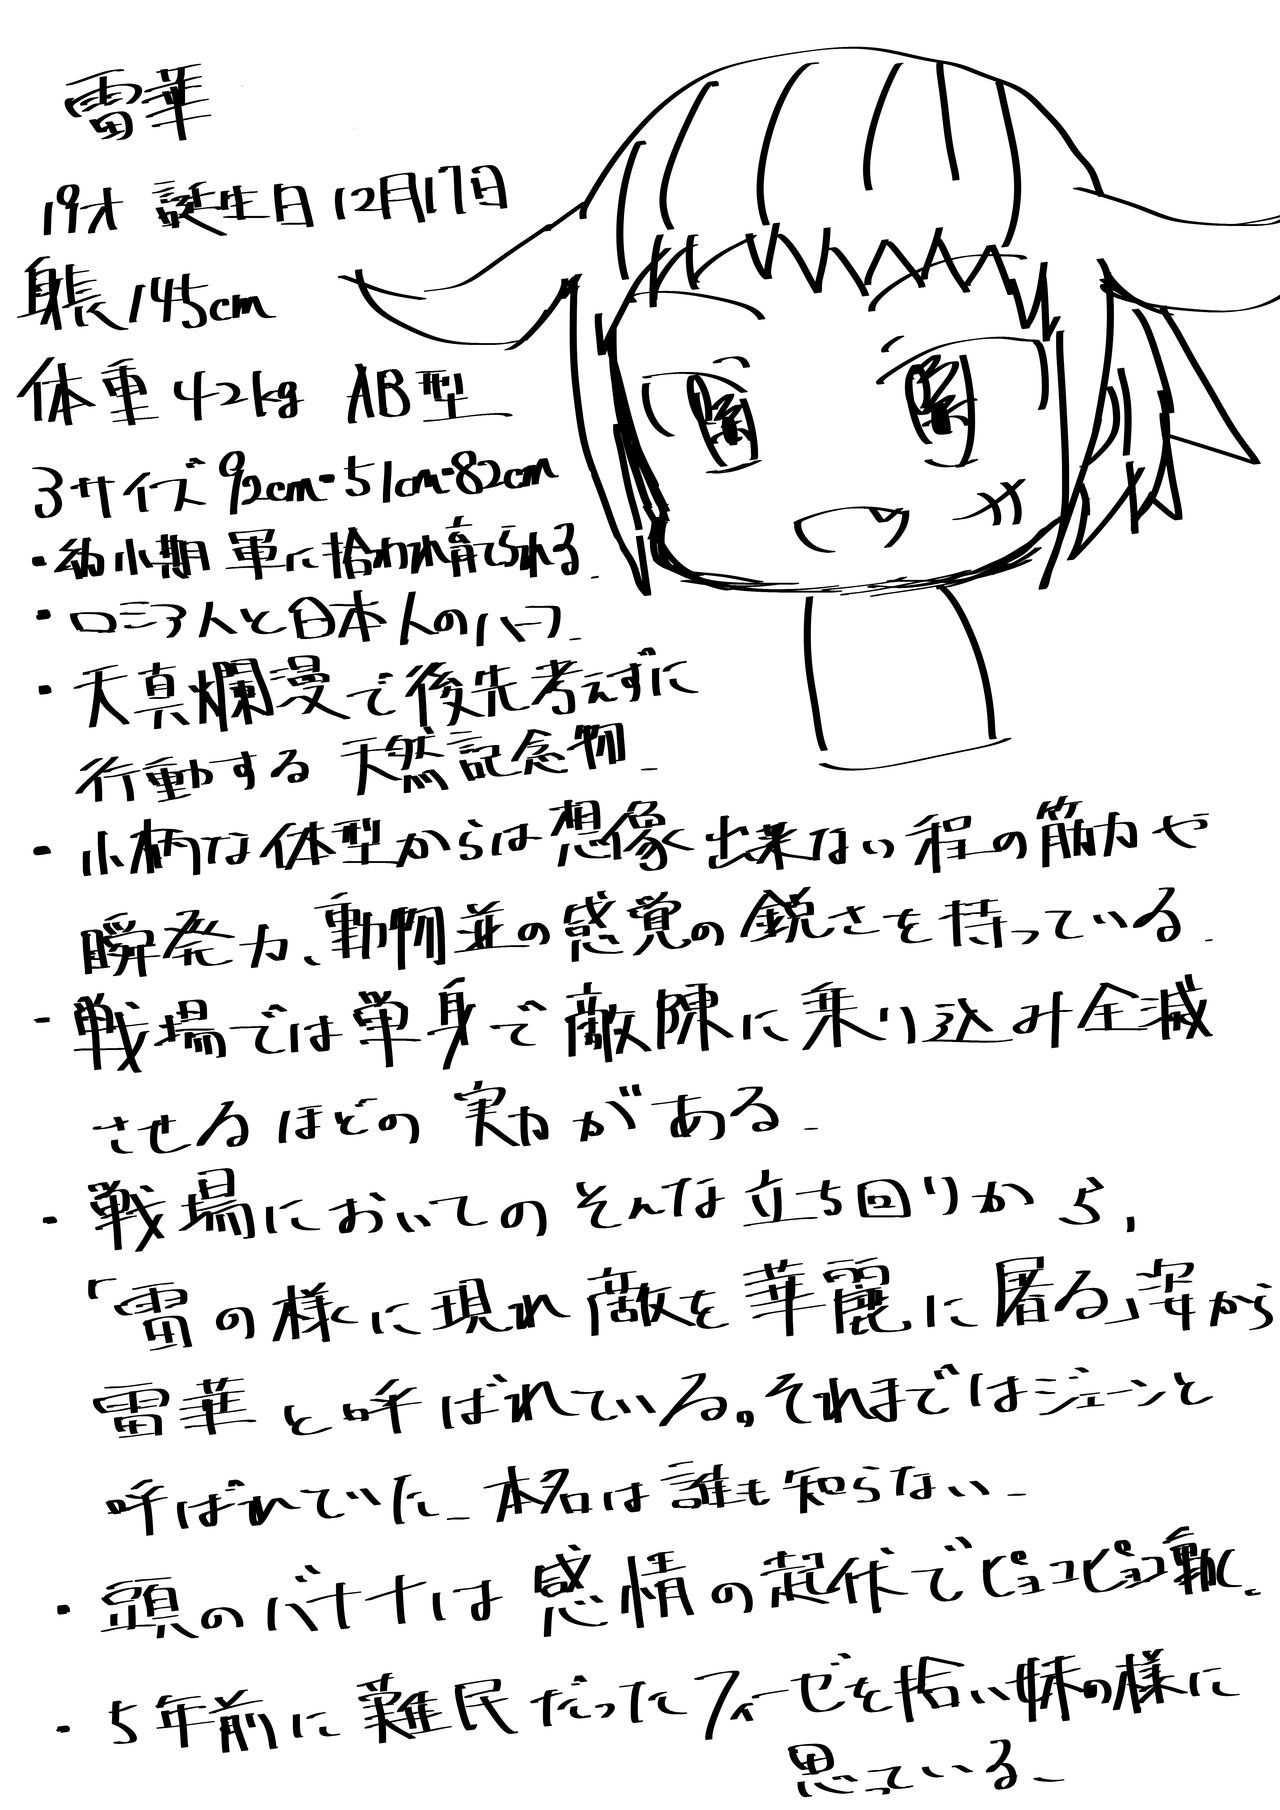 雷華
19才 誕生日 12月17日
身長 145cm
体重 42kg AB型
3サイズ 92cm・51cm・82cm
・幼少期 軍に拾われ育てられる.
・ロシア人と日本人のハーフ.
・天真爛漫で後先考えずに
行動する 天然記念物.
・小柄な体型からは想像出来ない程の筋力や
瞬発力、動物並の感覚の鋭さを持っている.
・戦場では単身で敵陣に乗り込み全滅
させるほどの 実力がある.
・戦場においてのそんな立ち回りから、
「雷の様に現れ敵を華麗に屠る」姿から
雷華と呼ばれている。それまではジェーンと
呼ばれていた. 本名は誰も知らない.
・頭のバナナは感情の起伏でピョコピョコ動く.
・5年前に難民だったフィーゼを拾い妹の様に
思っている.